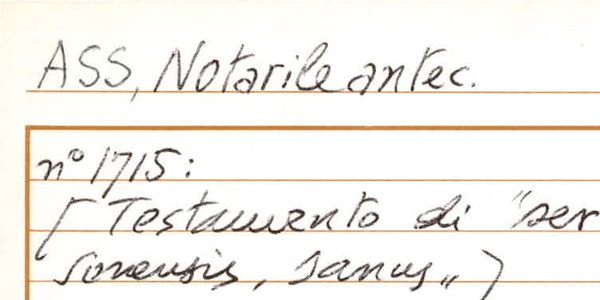 ASS, Notarile antec.
n° 1715:
[Testamento di "ser
sonensis, sanus")